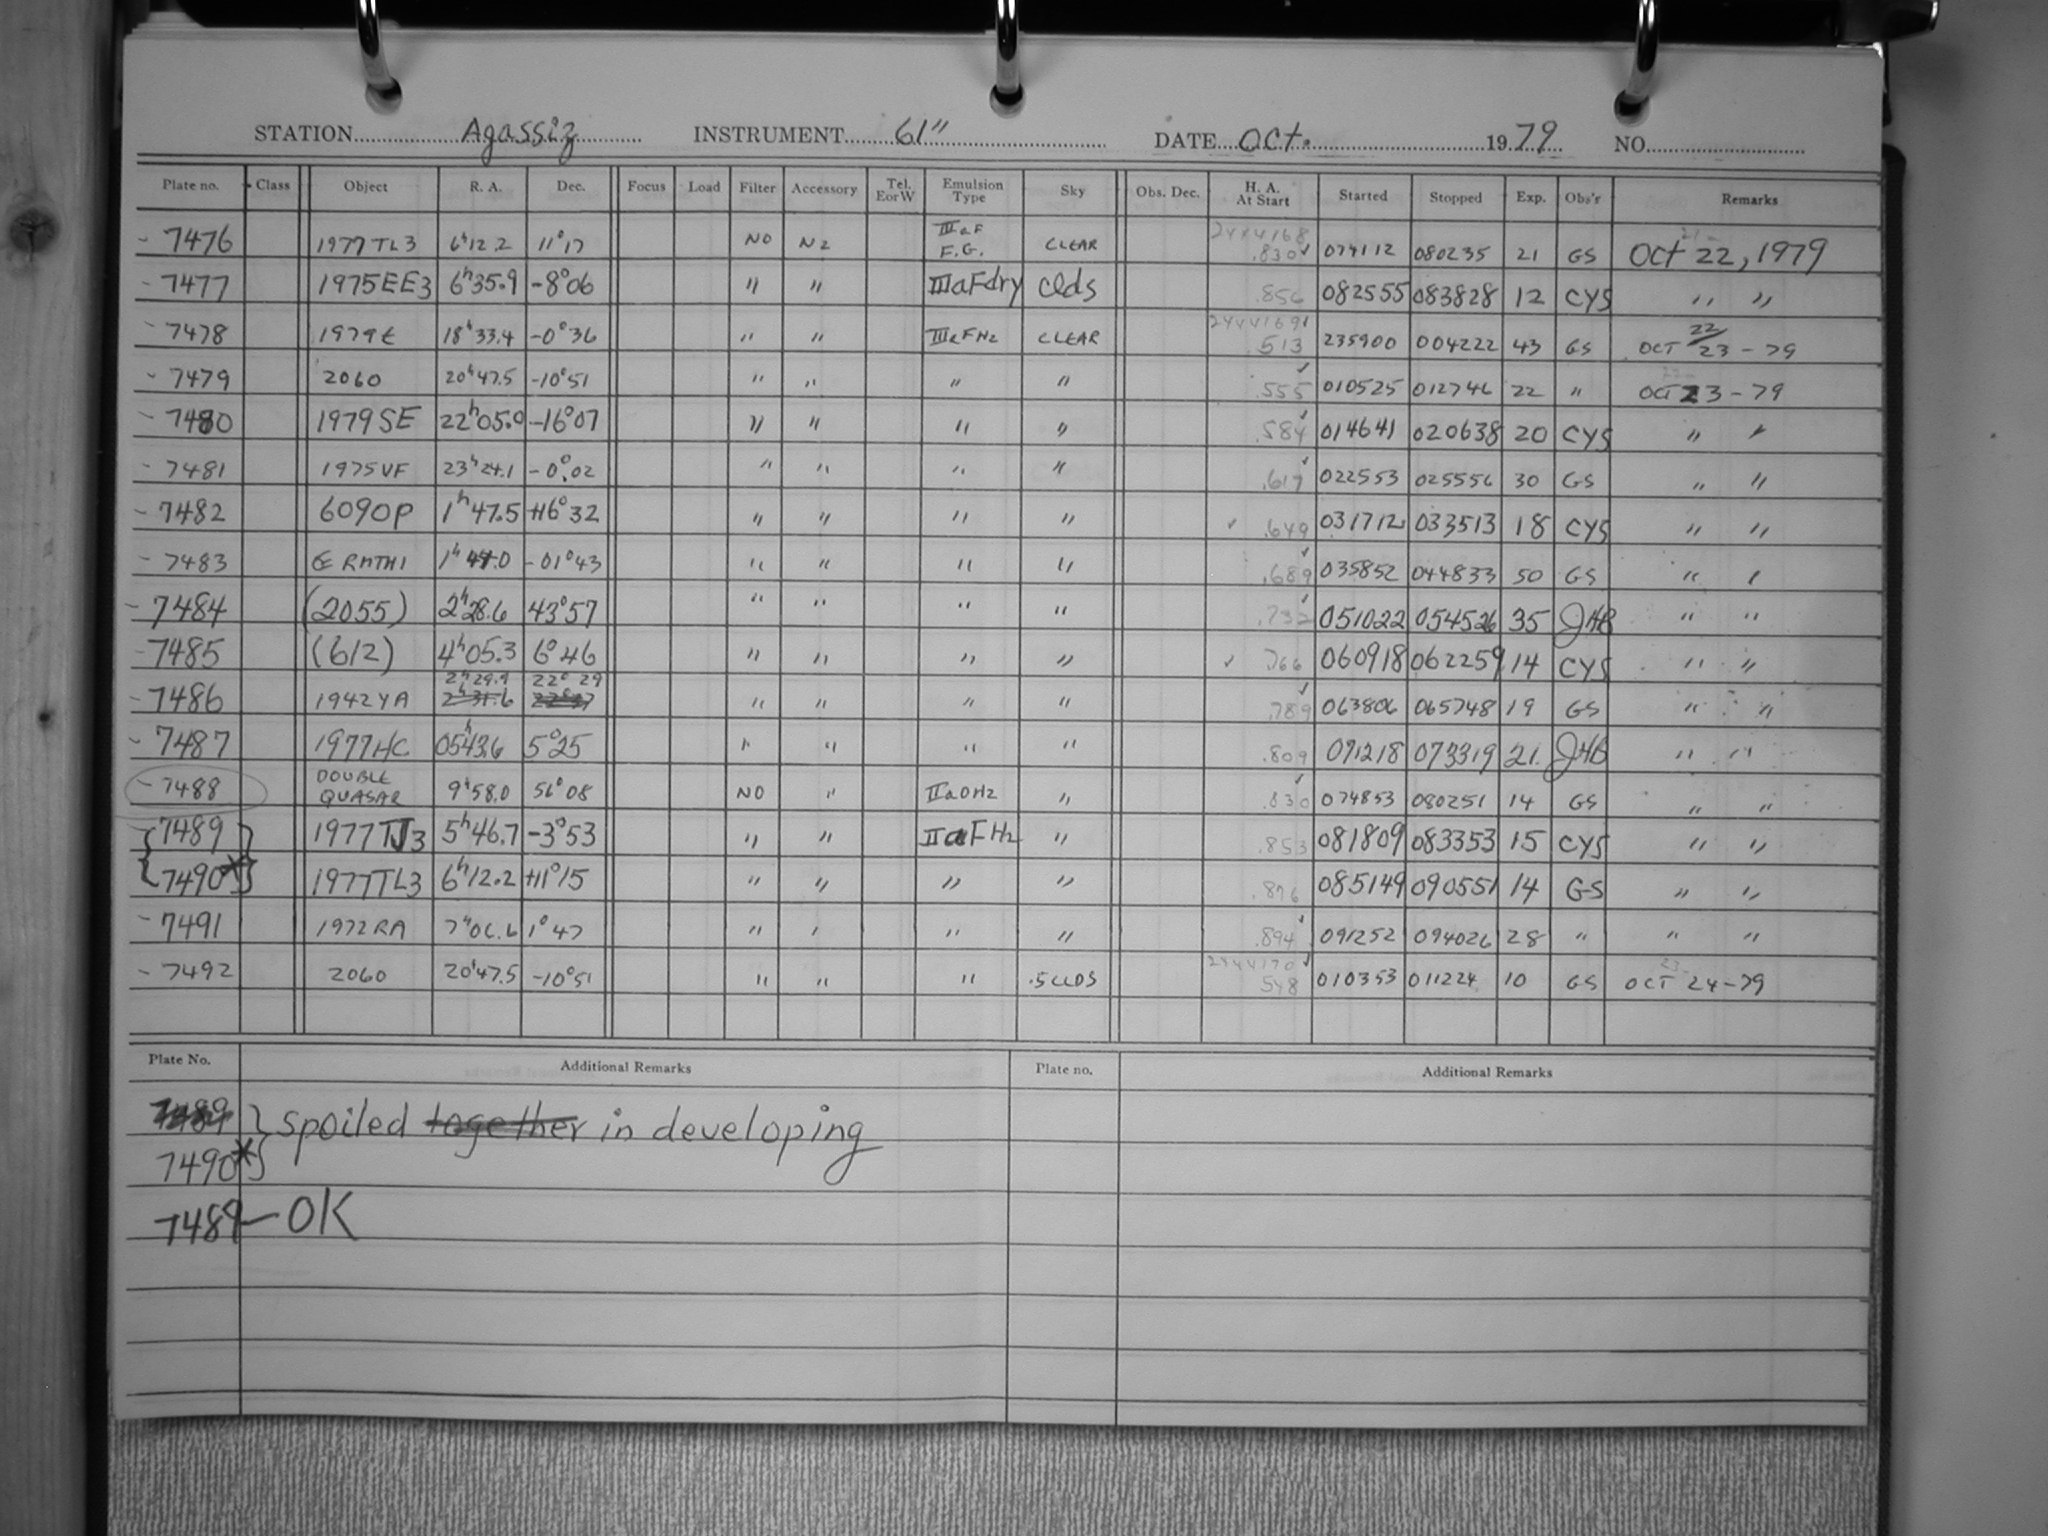 STATION Agassiz INSTRUMENT 61" DATE Oct. 1979 NO.
Plate no. Class Object R. A. Dec. Focus Load Filter Accessory Tel. E or W Emulsion Type Sky Obs. Dec. H. A. At Start Started Stopped Exp. Obs'r Remarks
7476 1977 TL3 6h12.2 11°17 NO N2 IIIaF F.G. CLEAR 2444168 .830 074112 080235 21 GS Oct 22, 1979
7477 1975EE3 6h35.9 -8°06 " " IIIaFdry Clds .856 082555 083828 12 CYS " "
7478 1979E 18h33.4 -0°36 " " IIIaFH2 CLEAR 2444169 .513 235900 004222 43 GS OCT 22/23-79
7479 2060 20h47.5 -10°51 " " " " .555 010525 012746 22 " OCT 23-79
7480 1979SE 22h05.0 -16°07 " " " " .584 014641 020638 20 CYS " "
7481 1975VF 23h24.1 -0°.02 " " " " .617 022553 025556 30 GS " "
7482 6090P 1h47.5 +16°32 " " " " .649 031712 033513 18 CYS " "
7483 -01°43 " " " " .689 035852 044833 50 GS " "
7484 (2055) 2h28.6 43°57 " " " " .732 051022 054526 35 JHB " "
7485 (612) 4h05.3 6°46 " " " " .766 060918 062259 14 CYS " "
2h29.9 22°29
7486 1942YA 2h31.6 " " " " .789 063806 065748 19 GS " "
7487 1977HC 05h43.6 5°25 " " " " .809 071218 073319 21 JHB " "
7488 DOUBLE QUASAR 9h58.0 56°08 NO " IIaOH2 " .830 074853 080251 14 GS " "
7489 1977TJ3 5h46.7 -3°53 " " IIIaFH2 " .853 081809 083353 15 CYS " "
7490* 1977TL3 6h12.2 +11°15 " " " " .876 085149 090551 14 GS " "
7491 1972RA 7h06.6 1°47 " " " " .894 091252 094026 28 " " "
7492 2060 20h47.5 -10°51 " " " .5 CLDS 2444170 .548 010353 011224 10 GS OCT 24-79
Plate No. Additional Remarks Plate no. Additional Remarks
7489 } spoiled together in developing
7490* }
7489 - OK